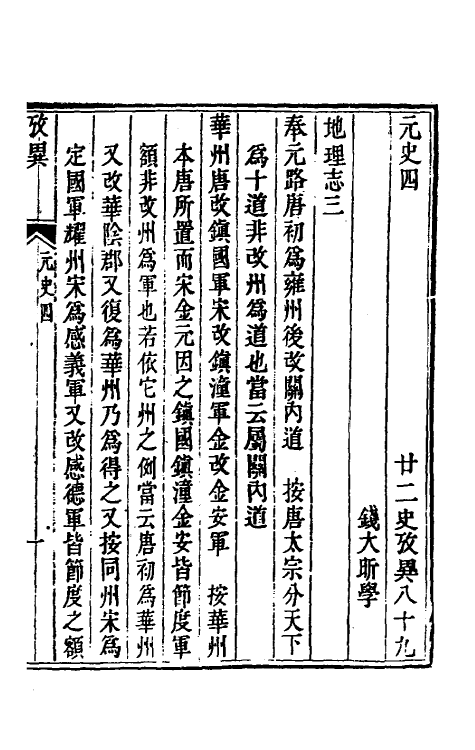 元史四　廿二史攷異八十九
錢大昕學
地理志三
奉元路唐初爲雍州後改關內道　按唐太宗分天下
爲十道非改州爲道也當云屬關內道
華州唐改鎭國軍宋改鎭潼軍金改金安軍　按華州
本唐所置而宋金元因之鎭國鎭潼金安皆節度軍
額非改州爲軍也若依它州之例當云唐初爲華州
又改華陰郡又復爲華州乃爲得之又按同州宋爲
定國軍耀州宋爲感義軍又改感德軍皆節度之額
攷異　元史四　一